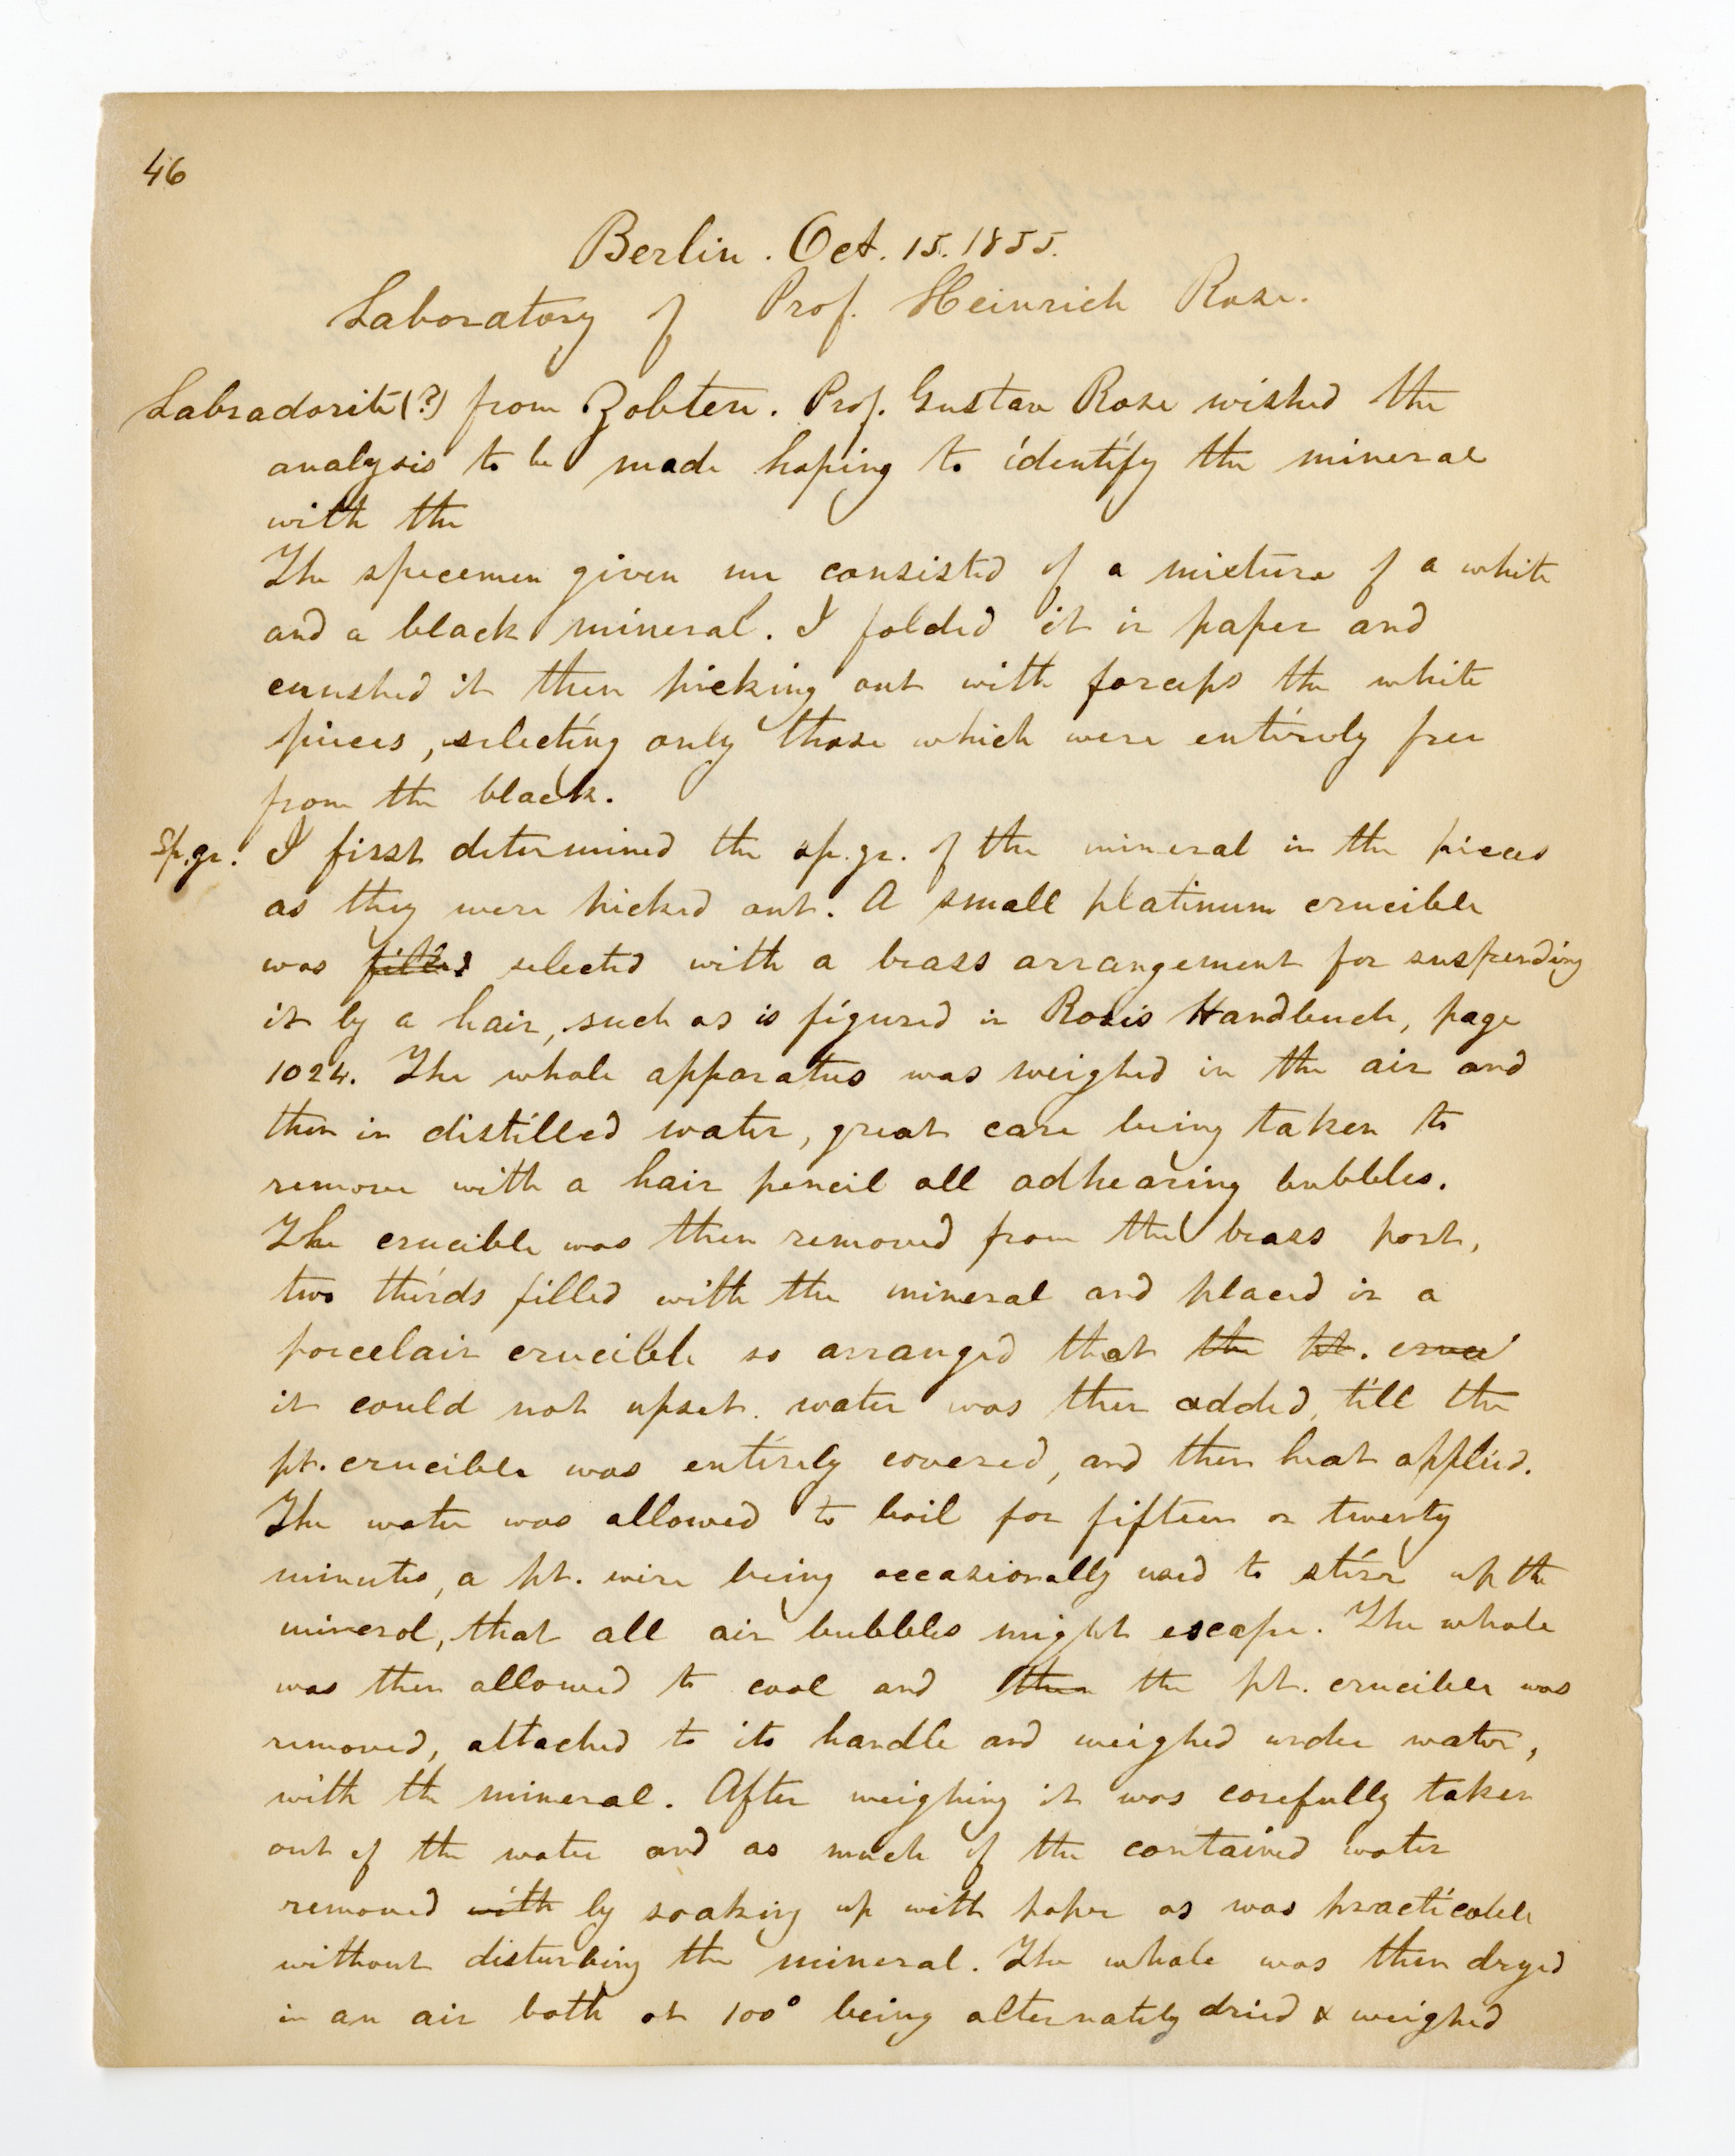 46
Berlin. Oct. 15. 1855.
Laboratory of Prof. Heinrich Rose.
Labradorite(?) from Zobten. Prof. Gustav Rose wished the
analysis to be made hoping to identify the mineral
with the
The specemen given me consisted of a mixture of a white
and a black mineral. I folded it in paper and
crushed it then picking out with forceps the white
pieces, selecting only those which were entirely free
from the black.
Sp.gr. I first determined the sp.gr. of the mineral in the pieces
as they were picked out. A small platinum crucible
was filled selected with a brass arrangement for suspending
it by a hair, such as is figured in Rose's Handbuch, page
1024. The whole apparatus was weighed in the air and
then in distilled water, great care being taken to
remove with a hair pencil all adhearing bubbles.
The crucible was then removed from the brass part,
two thirds filled with the mineral and placed in a
porcelain crucible so arranged that the pt. cruci
it could not upset. water was then added, till the
pt. crucible was entirely covered, and then heat applied.
The water was allowed to boil for fifteen or twenty
minutes, a pt. wire being occasionally used to stirr up the
mineral, that all air bubbles might escape. The whole
was then allowed to cool and then the pt. crucible was
removed, attached to its handle and weighed under water,
with the mineral. After weighing it was carefully taken
out of the water and as much of the contained water
removed with by soaking up with paper as was practicable
without disturbing the mineral. The whole was then dryed
in an air bath at 100° being alternately dried & weighed